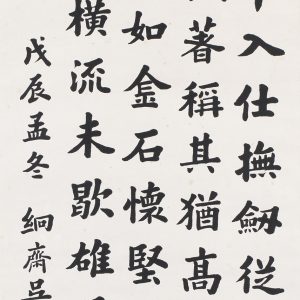 入仕撫劒從
著稱其猶高
如金石懷堅
橫流未歇雄
戊辰孟冬 絅齋吳